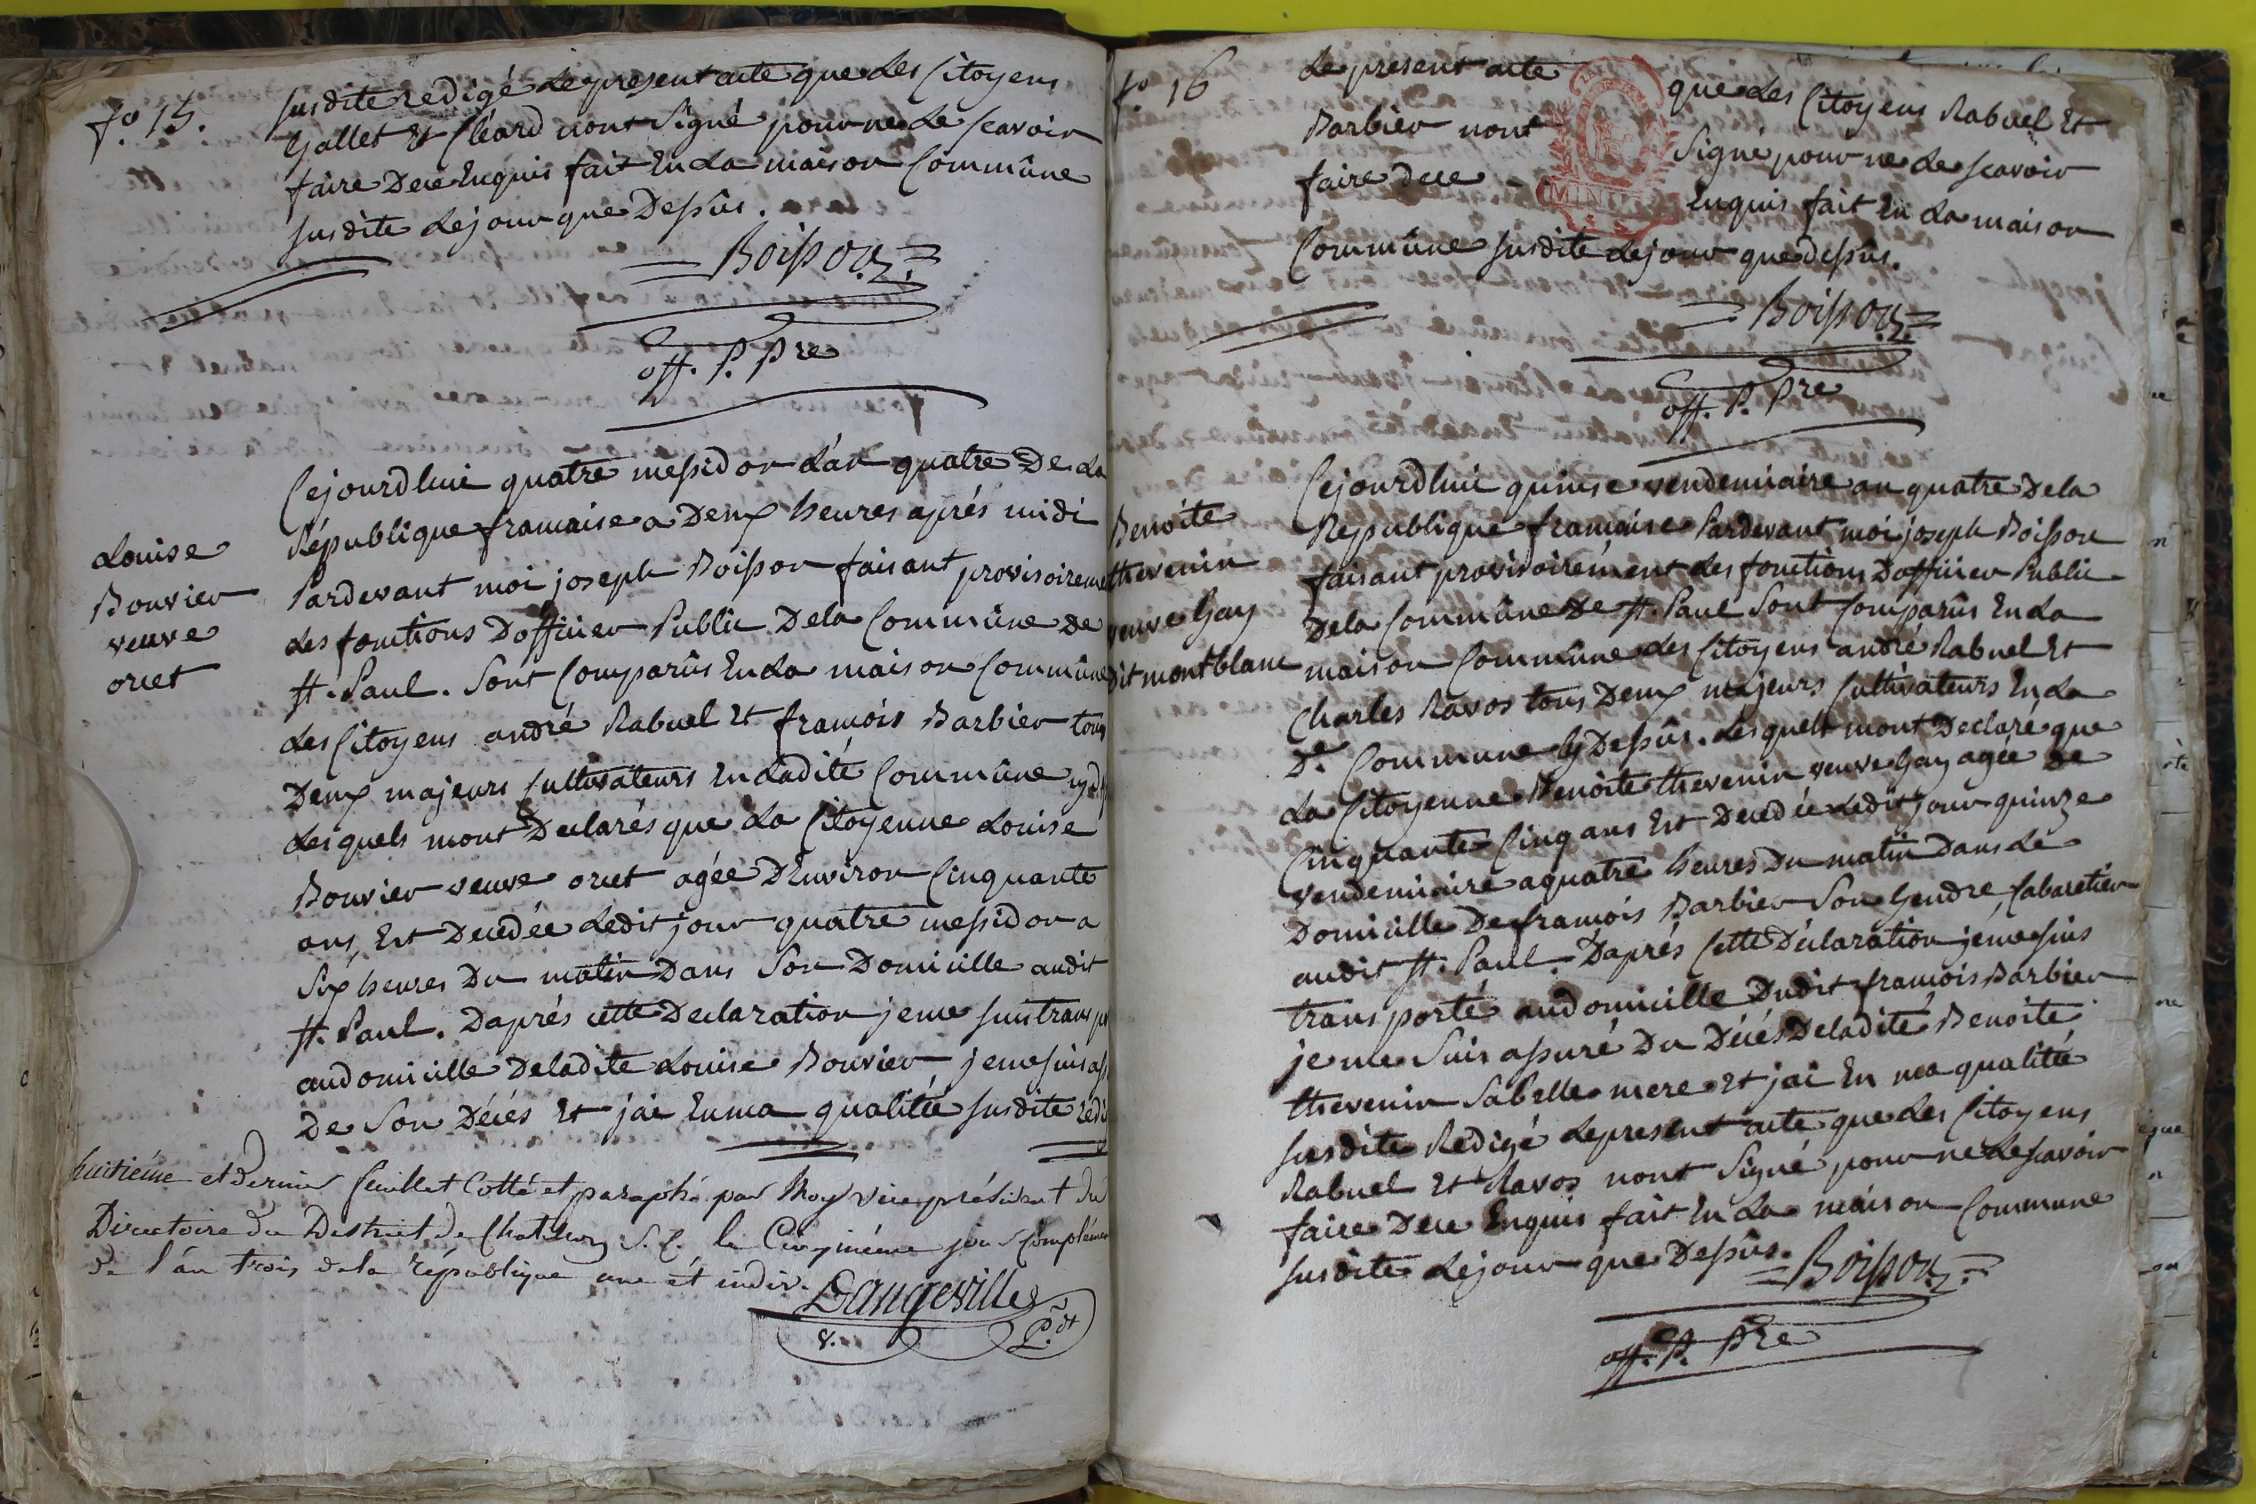 fo. 15.
susdite redigé Le present acte que Les Citoyens
Gallet Et Cléard nont Signé pour ne Le scavoir
faire De ce Enquis fait En La maison Commûne
susdite Le jour que Dessûs.
Boisson
off. P. Pre
Louise
Bouvier
veuve
oret
Cejourdhui quatre messidor L'an quatre De La
République francaise a Deux heures aprés midi
Pardevant moi joseph Boisson faisant provisoireme
Les fonctions Dofficier Public De la Commûne De
St. Paul. Sont Comparûs En La maison Commûne
Les Citoyens andré Rabuel Et francois Barbier tous
Deux majeurs Cultivateurs En Ladite Commûne
Lesquels mont Declarés que La Citoyenne Louise
Bouvier veuve oret agée DEnviron Cinquante
ans, Est Decedée Ledit jour quatre messidor a
Six heures Du matin Dans Son Domicille audit
St. Paul. Daprés cette Declaration je me suis trans
au domicille De ladite Louise Bouvier je me suis
De Son Décés Et jai En ma qualitée susdite rédi
huitiéme et dernier feuillet Cotté et paraphé par Moy vice président du
Directoire du District de Chatillon S. C. le Cinquiéme jour Complémen
de l'an trois de la république une et indiv.
Dangeville
8.
P.dt
fo. 16
Le present acte que Les Citoyens Rabuel Et
Barbier nont Signé pour ne Le scavoir
faire De ce Enquis fait En La maison
Commûne susdite Le jour que dessûs.
Boisson
off. P. Pre
Benoite
thevenin
veuve Gay
dit montblanc
Cejourdhui quinse vendemiaire an quatre De la
Republique francaise Pardevant moi joseph Boisson
faisant provisoirément Les fonctions Dofficier Public
De la Commûne De St. Paul Sont Comparûs En La
maison Commûne Les Citoyens andré Rabuel Et
Charles Ravos tous Deux majeurs Cultivateurs En La
De. Commune Cy Dessûs. Lesquels mont Declaré que
La Citoyenne Benoite thevenin veuve Gay agée De
Cinquante Cinq ans Est Decedée Ledit jour quinze
vendemiaire a quatre heures Du matin Dans Le
Domicille De francois Barbier Son Gendre, Cabaretier
audit St. Paul. Daprés Cette Déclaration je me suis
transporté au domicille Dudit francois Barbier
je me Suis assuré Du Décés De ladite Benoite
thevenin Sa belle mere Et jai En ma qualitée
susdite Redigé Le present acte que Les Citoyens
Rabuel Et Ravos nont Signé pour ne Le scavoir
faire De ce Enquis fait En La maison Commune
susdite Le jour que Dessûs.
Boisson
off. P. Pre